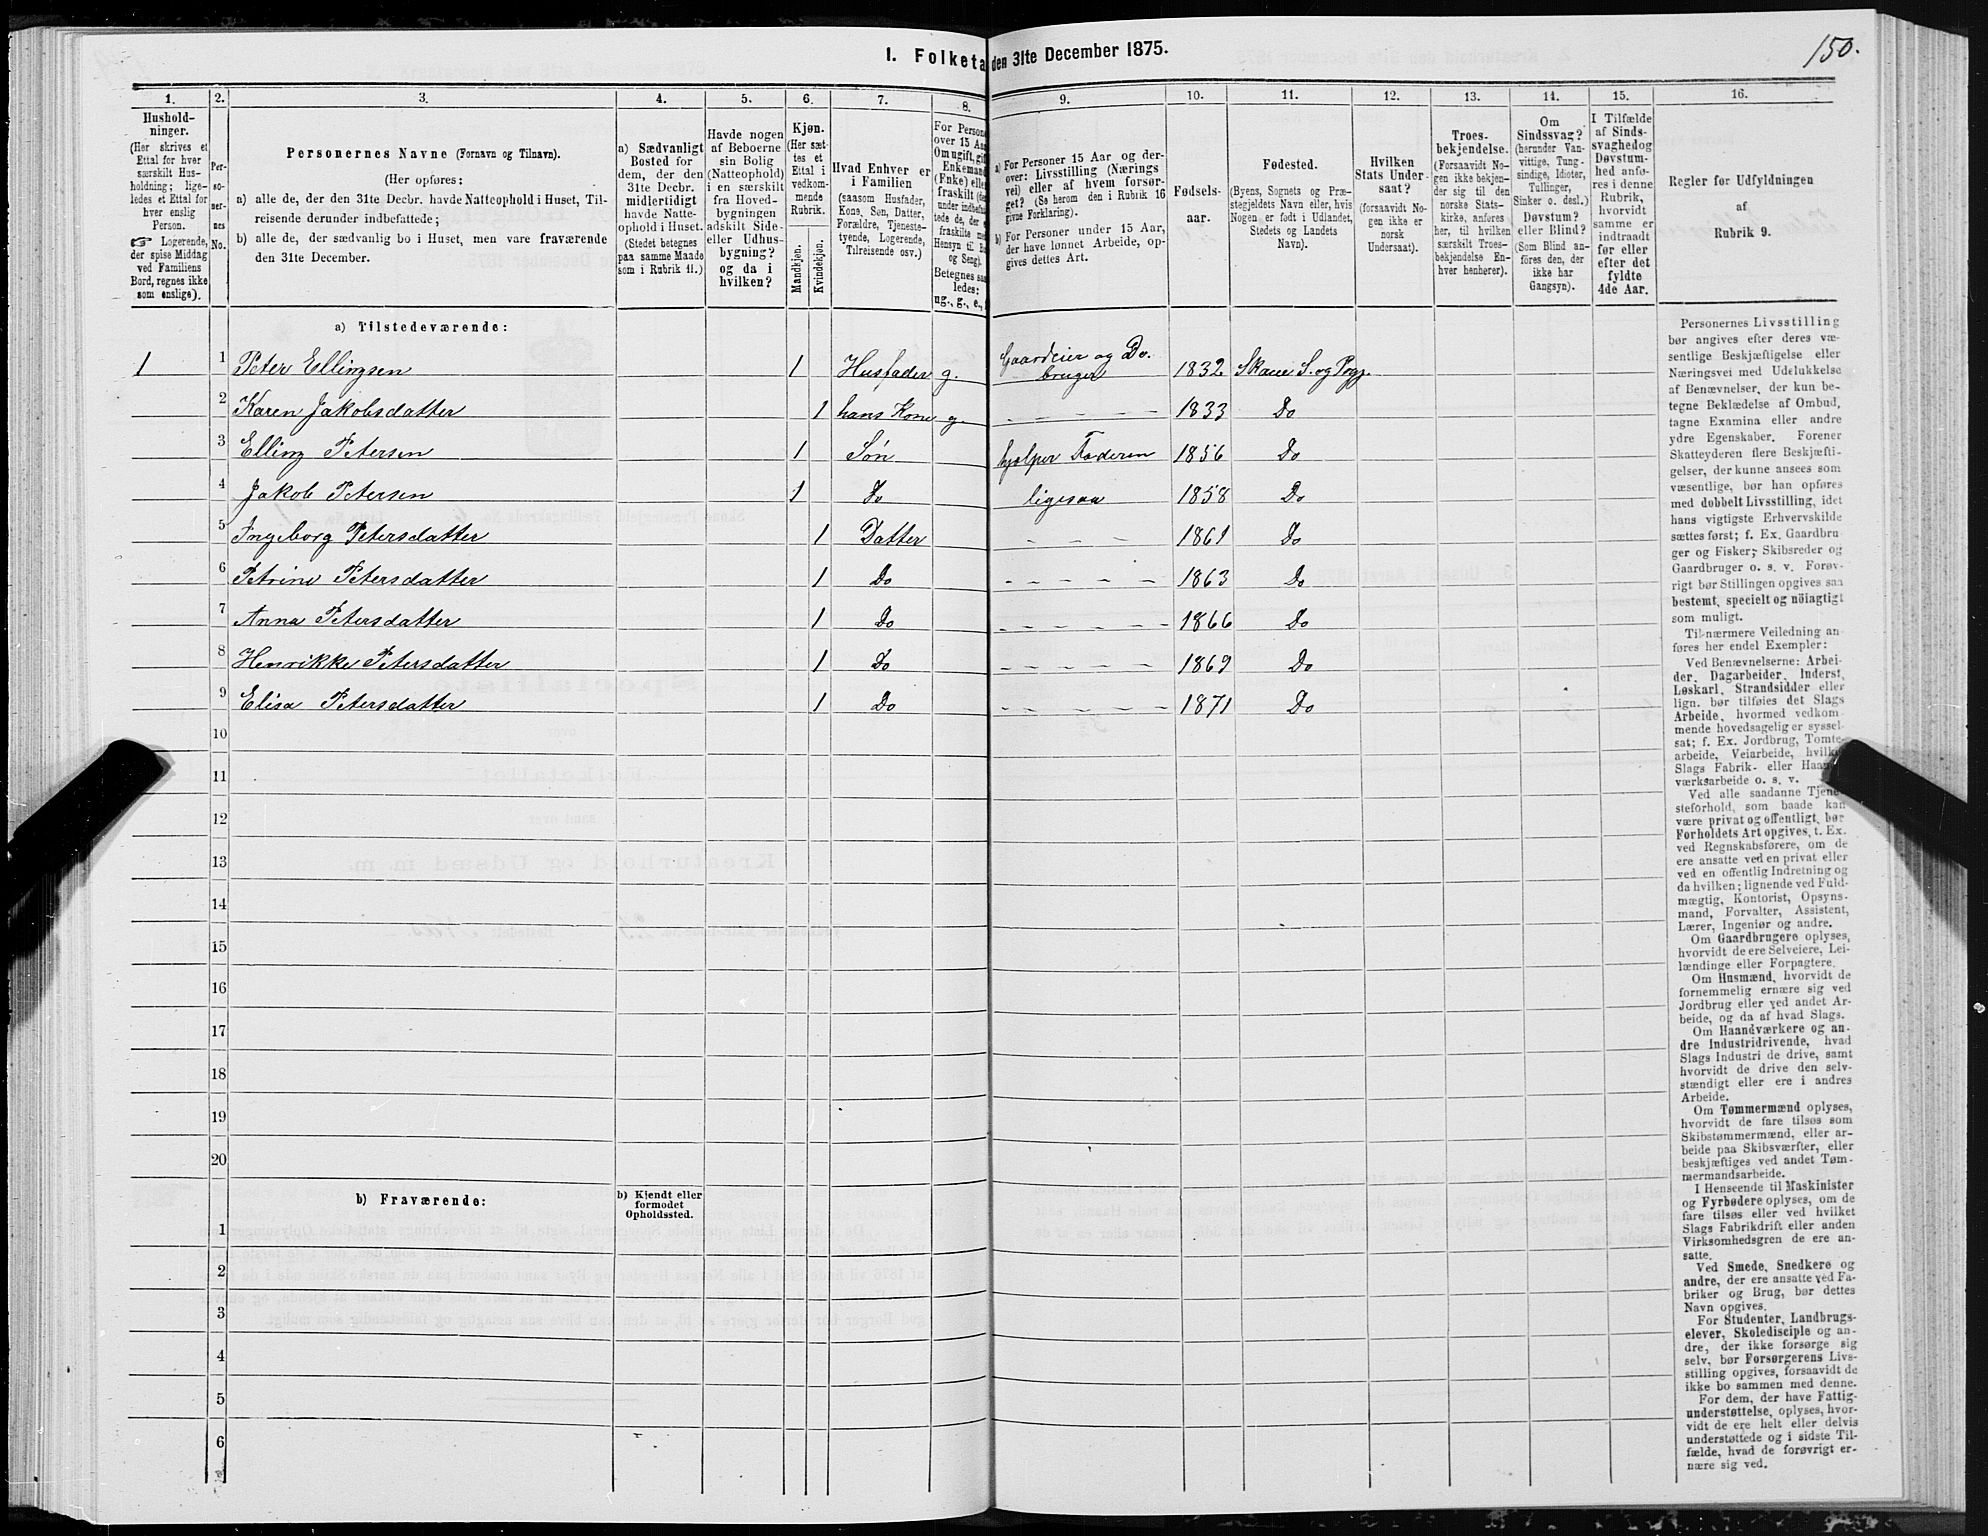 150.
I. Folketa den 31te December 1875.
1. 2. 3. 4. 5. 6. 7. 8. 9. 10. 11. 12. 13. 14. 15. 16.
Hushold-
ninger.
(Her skrives et
Ettal for hver
særskilt Hus-
holdning; lige-
ledes et Ettal for
hver enslig
Person.
☞ Logerende,
der spise Middag
ved Familiens
Bord, regnes ikke
som enslige).
Per-
so-
ner-
nes
No.
Personernes Navne (Fornavn og Tilnavn).
(Her opføres:
a) alle de, der den 31te Decbr. havde Natteophold i Huset, Til-
reisende derunder indbefattede;
b) alle de, der sædvanlig bo i Huset, men vare fraværende
den 31te December.
a) Sædvanligt
Bosted for
dem, der den
31te Decbr.
midlertidigt
havde Natte-
ophold i Huset.
(Stedet betegnes
paa samme Maade
som i Rubrik 11.)
Havde nogen
af Beboerne
sin Bolig
(Natteophold)
i en særskilt
fra Hoved-
bygningen
adskilt Side-
eller Udhus-
bygning?
og da i
hvilken?
Kjøn.
(Her sæt-
tes et
Ettal i
vedkom-
mende
Rubrik.
Mandkjøn.
Kvindekjøn.
Hvad Enhver er
i Familien
(saasom Husfader,
Kone, Søn, Datter,
Forældre, Tjeneste-
tyende, Logerende,
Tilreisende osv.)
For Persone
over 15 Aar
Om ugift, gif
Enkemand
(Enke) elle
fraskilt (de
under indbefa
tede de, der e
fraskilte m
Hensyn til Bo
og Seng).
Betegnes saa
ledes:
ug., g., e.,
a) For Personer 15 Aar og der-
over: Livsstilling (Nærings
vei) eller af hvem forsør-
get? (Se herom den i Rubrik 16
givne Forklaring).
b) For Personer under 15 Aar,
der have lønnet Arbeide, op-
gives dettes Art.
Fødsels-
aar.
Fødested.
(Byens, Sognets og Præ-
stegjeldets Navn eller, hvis
Nogen er født i Udlandet,
Stedets og Landets
Navn).
Hvilken
Stats Under-
saat?
(forsaavidt No-
gen ikke er
norsk
Undersaat).
Troes-
bekjendelse.
(Forsaavidt No-
gen ikke bekjen-
der sig til den
norske Stats-
kirke, anføres
her, til hvilken
særskilt Troes-
bekjendelse En-
hver henhører).
Om
Sindssvag?
(herunder Van-
vittige, Tung-
sindige, Idioter,
Tullinger,
Sinker o. desl.)
Døvstum?
eller Blind?
(Som Blind an-
føres den, der
ikke har
Gangsyn).
I Tilfælde
af Sinds-
svaghed og
Døvstum-
hed anfø-
res i denne
Rubrik,
hvorvidt
samme er
indtraadt
før eller
efter det
fyldte
4de Aar.
Regler før Udfyldningen
af
Rubrik 9.
a) Tilstedeværende:
1 1 Peter Ellingsen 1 Husfader g. Gaardeier og Do. bruger 1832 Skaue S. og Pgj.
2 Karen Jakobsdatter 1 hans Kone g. - - - - - 1833 Do
3 Elling Petersen 1 Søn hjelper Faderen 1856 Do
4 Jakob Petersen 1 Do ligesaa 1858 Do
5 Ingeborg Petersdatter 1 Datter - - - - 1861 Do
6 Petrine Petersdatter 1 Do - - - - - 1863 Do
7 Anna Petersdatter 1 Do - - - - - 1866 Do
8 Henrikke Petersdatter 1 Do - - - - - 1869 Do
9 Elisa Petersdatter 1 Do - - - - - 1871 Do
10
11
12
13
14
15
16
17
18
19
20
b) Fraværende:
b) Kjendt eller
formodet
Opholdssted.
1
2
3
4
5
6
Personernes Livsstilling
bør angives efter deres væ-
sentlige Beskjæftigelse eller
Næringsvei med Udelukkelse
af Benævnelser, der kun be-
tegne Beklædelse af Ombud,
tagne Examina eller andre
ydre Egenskaber. Forener
Skatteyderen flere Beskjæfti-
gelser, der kunne ansees som
væsentlige, bør han opføres
med dobbelt Livsstilling, idet
hans vigtigste Erhvervskilde
sættes først; f. Ex. Gaardbru-
ger og Fisker; Skibsreder og
Gaardbruger o. s. v. Forøv-
rigt bør Stillingen opgives saa
bestemt, specielt og nöiagtigt
som muligt.
Til nærmere Veiledning an-
føres her endel Exempler:
Ved Benævnelserne: Arbei-
der, Dagarbeider, Inderst,
Løskarl, Strandsidder eller
lign. bør tilføies det Slags
Arbeide, hvormed vedkom-
mende hovedsagelig er syssel-
sat; f. Ex. Jordbrug, Tomte-
arbeide, Veiarbeide, hvilket
Slags Fabrik- eller Haand-
værksarbeide o. s. v.
Ved alle saadanne Tjene-
steforhold, som baade kan
være privat og offentligt, bør
Forholdets Art opgives, t. Ex.
ved Regnskabsførere, om de
ere ansatte ved en privat eller
ved en offentlig Indretning og
da hvilken; lignende ved Fuld-
mægtig, Kontorist, Opsyns-
mand, Forvalter, Assistent,
Lærer, Ingeniør og andre.
Om Gaardbrugere oplyses,
hvorvidt de ere Selveiere, Lei-
lændinge eller Forpagtere.
Om Husmænd, hvorvidt de
fornemmelig ernære sig ved
Jordbrug eller ved andet Ar-
beide, og da af hvad Slags.
Om Haandværkere og an-
dre Industridrivende, hvad
Slags Industri de drive, samt
hvorvidt de drive den selv-
stændigt eller ere i andres
Arbeide.
Om Tømmermænd oplyses,
hvorvidt de fare tilsøs som
Skibstømmermænd, eller ar-
beide paa Skibsværfter, eller
beskjæftiges ved andet Tøm-
mermandsarbeide.
I Henseende til Maskinister
og Fyrbødere oplyses, om de
fare tilsøs eller ved hvilket
Slags Fabrikdrift eller anden
Virksomhedsgren de ere an-
satte.
Ved Smede, Snedkere og
andre, der ere ansatte ved Fa-
briker og Brug, bør dettes
Navn opgives.
For Studenter, Landbrugs-
elever, Skoledisciple og an-
dre, der ikke forsørge sig
selv, bør Forsørgerens Livs-
stilling opgives, forsaavidt de
ikke bo sammen med denne.
For dem, der have Fattig-
understøttelse, oplyses, hvor-
vidt de ere helt eller delvis
understøttede og i sidste Til-
fælde, hvad de forøvrigt er-
nære sig ved.